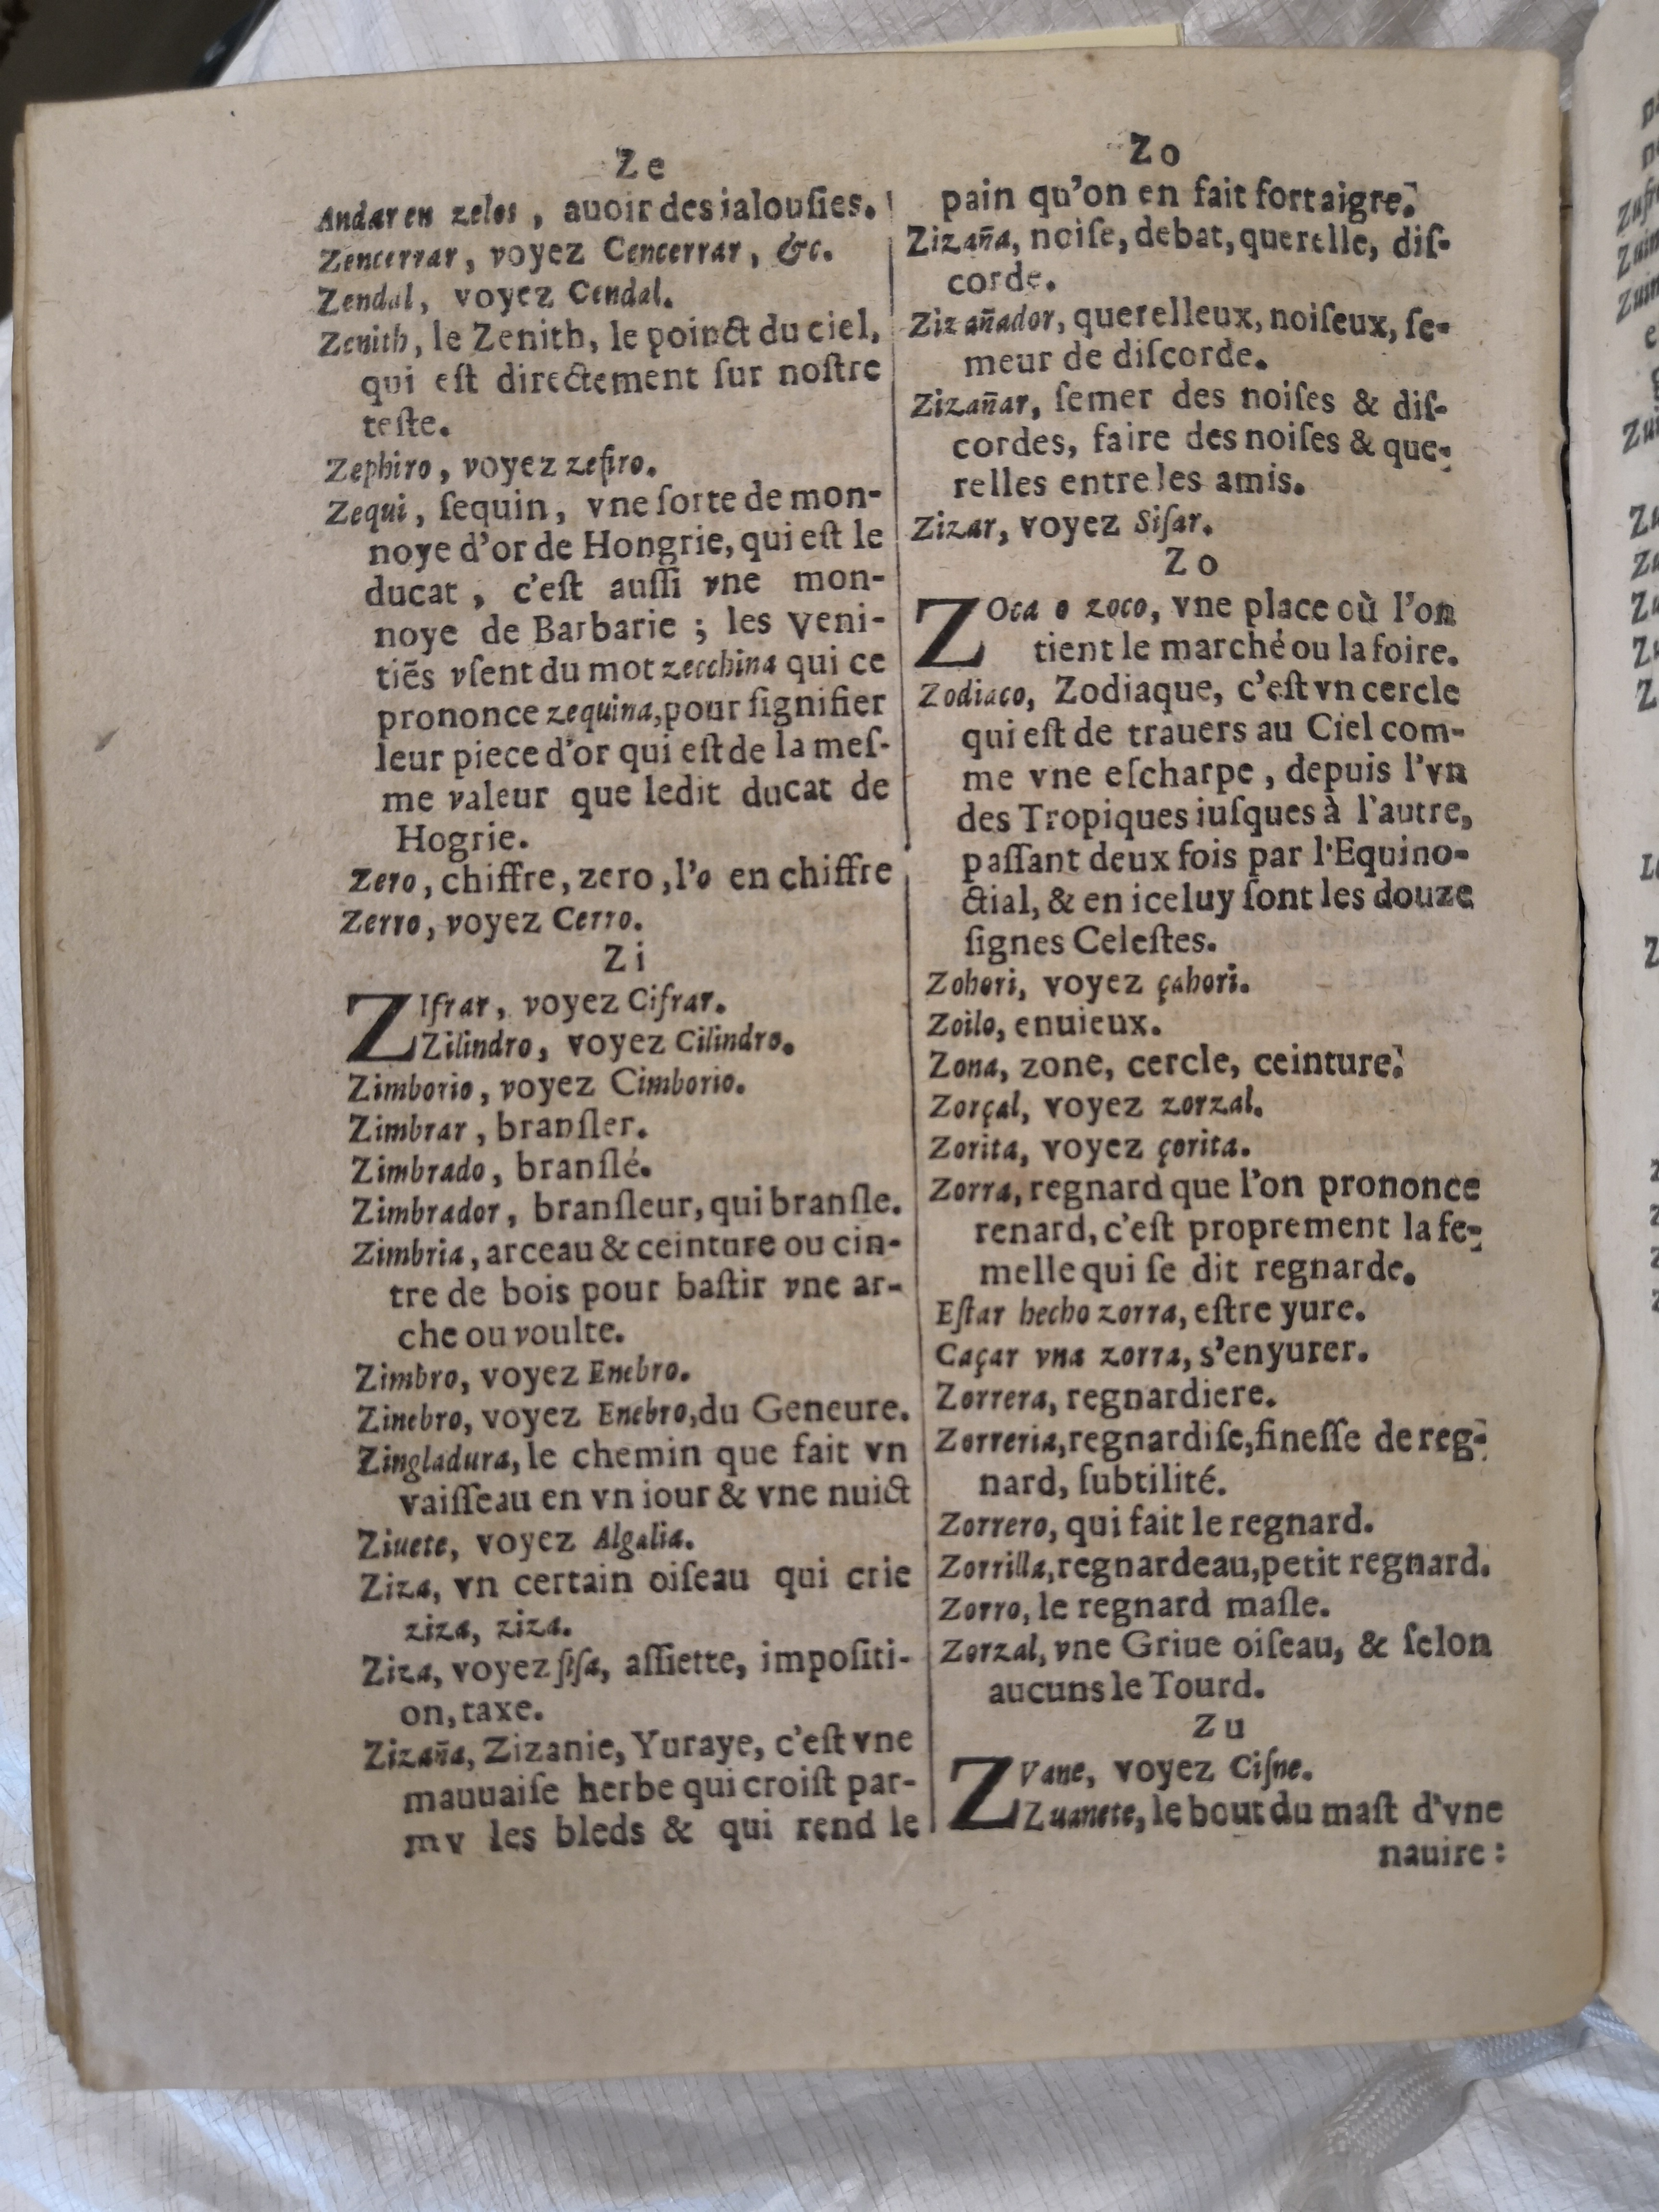 Ze
Andar en zelos, auoir des ialousies.
Zencerrar, voyez Cencerrar, &c.
Zendal, voyez Cendal.
Zenith, le Zenith, le poinct du ciel,
qui eſt directement ſur noſtre
teſte.
Zephiro, voyez zefiro.
Zequi, ſequin, vne ſorte de mon-
noye d'or de Hongrie, qui eſt le
ducat, c'eſt auſſi vne mon-
noye de Barbarie; les Veni-
tiẽs vſent du mot zecchina qui ce
prononce zequina, pour ſignifier
leur piece d'or qui eſt de la meſ-
me valeur que ledit ducat de
Hogrie.
Zero, chiffre, zero, l'o en chiffre
Zerro, voyez Cerro.
Zi
ZIfrar, voyez Cifrar.
Zilindro, voyez Cilindro.
Zimborio, voyez Cimborio.
Zimbrar, branſler.
Zimbrado, branſlé.
Zimbrador, branſleur, qui branſle.
Zimbria, arceau & ceinture ou cin-
tre de bois pour baſtir vne ar-
che ou voulte.
Zimbro, voyez Enebro.
Zinebro, voyez Enebro, du Geneure.
Zingladura, le chemin que fait vn
vaiſſeau en vn iour & vne nuict
Ziuete, voyez Algalia.
Ziza, vn certain oiſeau qui crie
ziza, ziza.
Ziza, voyez ſiſa, aſſiette, impoſiti-
on, taxe.
Zizaña, Zizanie, Yuraye, c'eſt vne
mauuaiſe herbe qui croiſt par-
my les bleds & qui rend le
Zo
pain qu'on en fait fort aigre.
Zizaña, noiſe, debat, querelle, diſ-
corde.
Zizañador, querelleux, noiſeux, ſe-
meur de diſcorde.
Zizañar, ſemer des noiſes & diſ-
cordes, faire des noiſes & que-
relles entre les amis.
Zizar, voyez Siſar.
Zo
ZOca o zoco, vne place où l'on
tient le marché ou la foire.
Zodiaco, Zodiaque, c'eſt vn cercle
qui eſt de trauers au Ciel com-
me vne eſcharpe, depuis l'vn
des Tropiques iuſques à l'autre,
paſſant deux fois par l'Equino-
ctial, & en iceluy ſont les douze
ſignes Celeſtes.
Zohori, voyez çahori.
Zoilo, enuieux.
Zona, zone, cercle, ceinture.
Zorçal, voyez zorzal.
Zorita, voyez çorita.
Zorra, regnard que l'on prononce
renard, c'eſt proprement la fe-
melle qui ſe dit regnarde.
Eſtar hecho zorra, eſtre yure.
Caçar vna zorra, s'enyurer.
Zorrera, regnardiere.
Zorreria, regnardiſe, fineſſe de reg-
nard, ſubtilité.
Zorrero, qui fait le regnard.
Zorrilla, regnardeau, petit regnard.
Zorro, le regnard maſle.
Zorzal, vne Griue oiſeau, & ſelon
aucuns le Tourd.
Zu
ZVane, voyez Ciſne.
Zuanete, le bout du maſt d'vne
nauire: